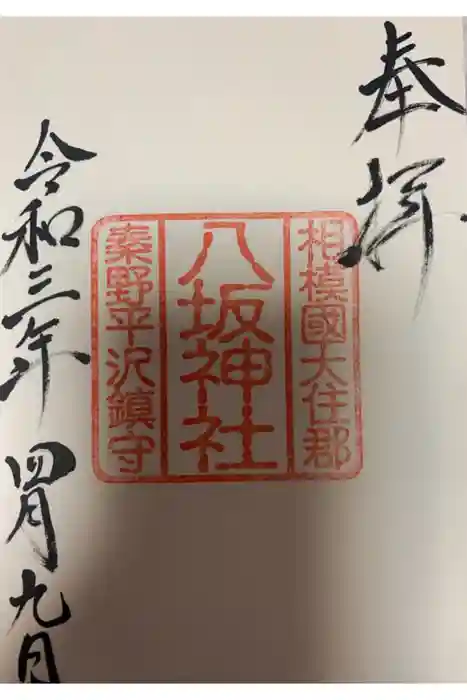 奉拝
相模國大住郡
八坂神社
秦野平沢鎮守
令和三年四月九日